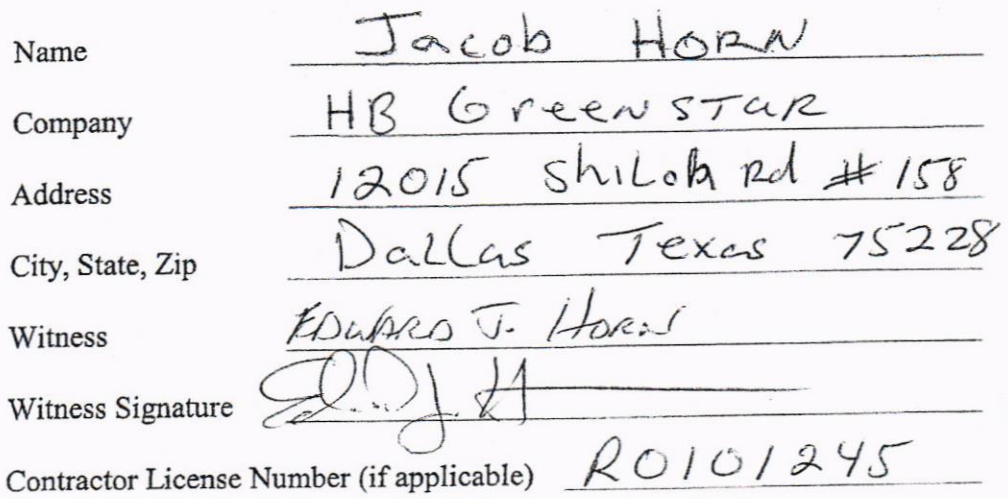 Name Jacob HORN
Company HB GreenSTAR
Address 12015 ShiLoh Rd # 158
City, State, Zip DaLLas Texas 75228
Witness EDWARD J. HORN
Witness Signature
Contractor License Number (if applicable) R0101245